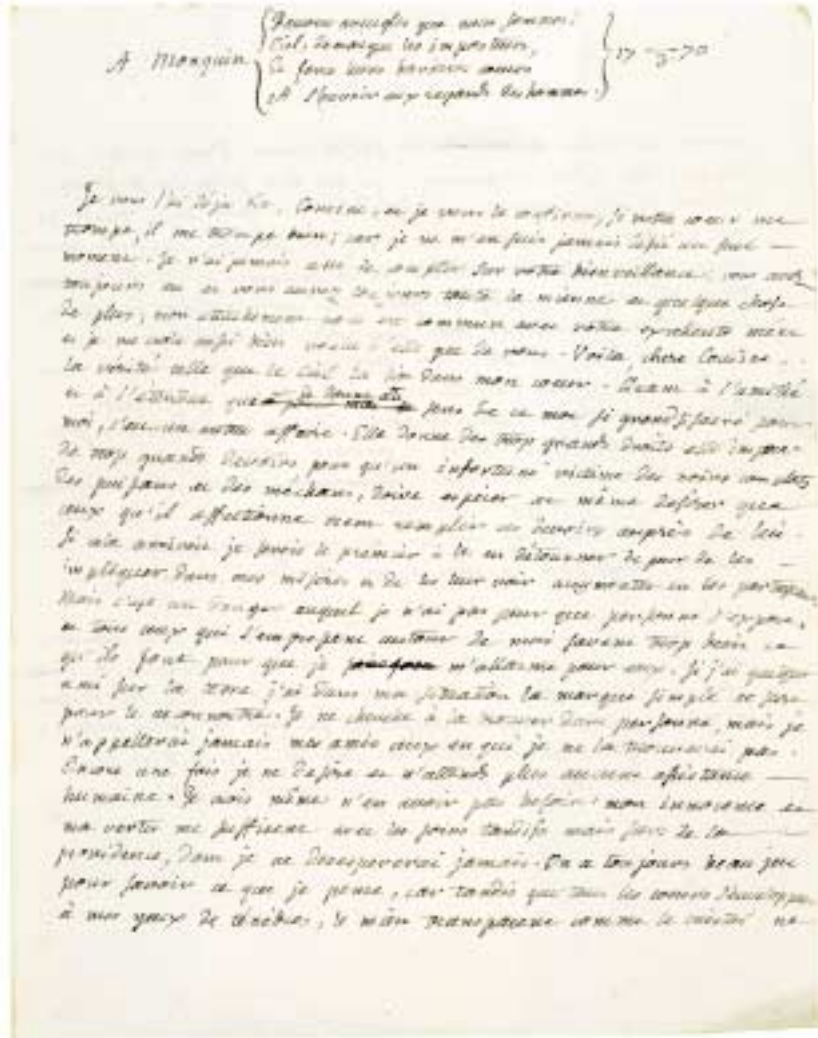 Pauvres aveugles que nous sommes!
Ciel, demasque les imposteurs,
Et force leurs barbares cœurs
A s'ouvrir aux regards des hommes.
A Monquin 17 70
Je vous l'ai déja dit, Cousine, et je vous le confirme, si votre cœur me
trompe, il me trompe bien; car je ne m'en suis jamais défié un seul
moment. Je n'ai jamais cessé de compter sur votre bienveillance; vous avez
toujours eu et vous aurez toujours toute la mienne et quelque chose
de plus; mon attachement vous est commun avec votre excellente mere
et je ne suis aussi bien voulu d'elle que de vous. Voila, chere Cousine,
la vérité telle que le Ciel la lit dans mon cœur. Quant à l'amitié
et à l'étendue que je donne au sens de ce mot si grand si sacré pour
moi, c'est une autre affaire. Elle donne des trop grands droits elle impose
de trop grands devoirs pour qu'un infortuné victime des noirs complots
des puissans et des méchans, doive espérer et même desirer que
ceux qu'il affectionne osent remplir ces devoirs auprès de lui.
Si cela arrivoit je serois le premier à les en détourner de peur de les
impliquer dans mes misères et de les leur voir augmenter en les partageant.
Mais c'est un danger auquel je n'ai pas peur que personne s'expose,
et tous ceux qui s'empressent autour de moi savent trop bien ce
qu'ils font pour que je m'allarme pour eux. Si j'ai quelque
ami sur la terre j'ai dans ma situation la marque simple et sure
pour le reconnoitre. Je ne cherche à la trouver dans personne, mais je
n'appellerai jamais mes amis ceux en qui je ne la trouverai pas.
Encore une fois je ne desire et n'attends plus aucune assistance
humaine. Je crois même n'en avoir pas besoin: mon innocence et
ma vertu me suffisent avec les soins tardifs mais surs de la
providence, dont je ne desespererai jamais. On a toujours beau jeu
pour savoir ce que je pense, car tandis que tous les cœurs s'enveloppent
à mes yeux de ténébres, le mien transparent comme le cristal ne